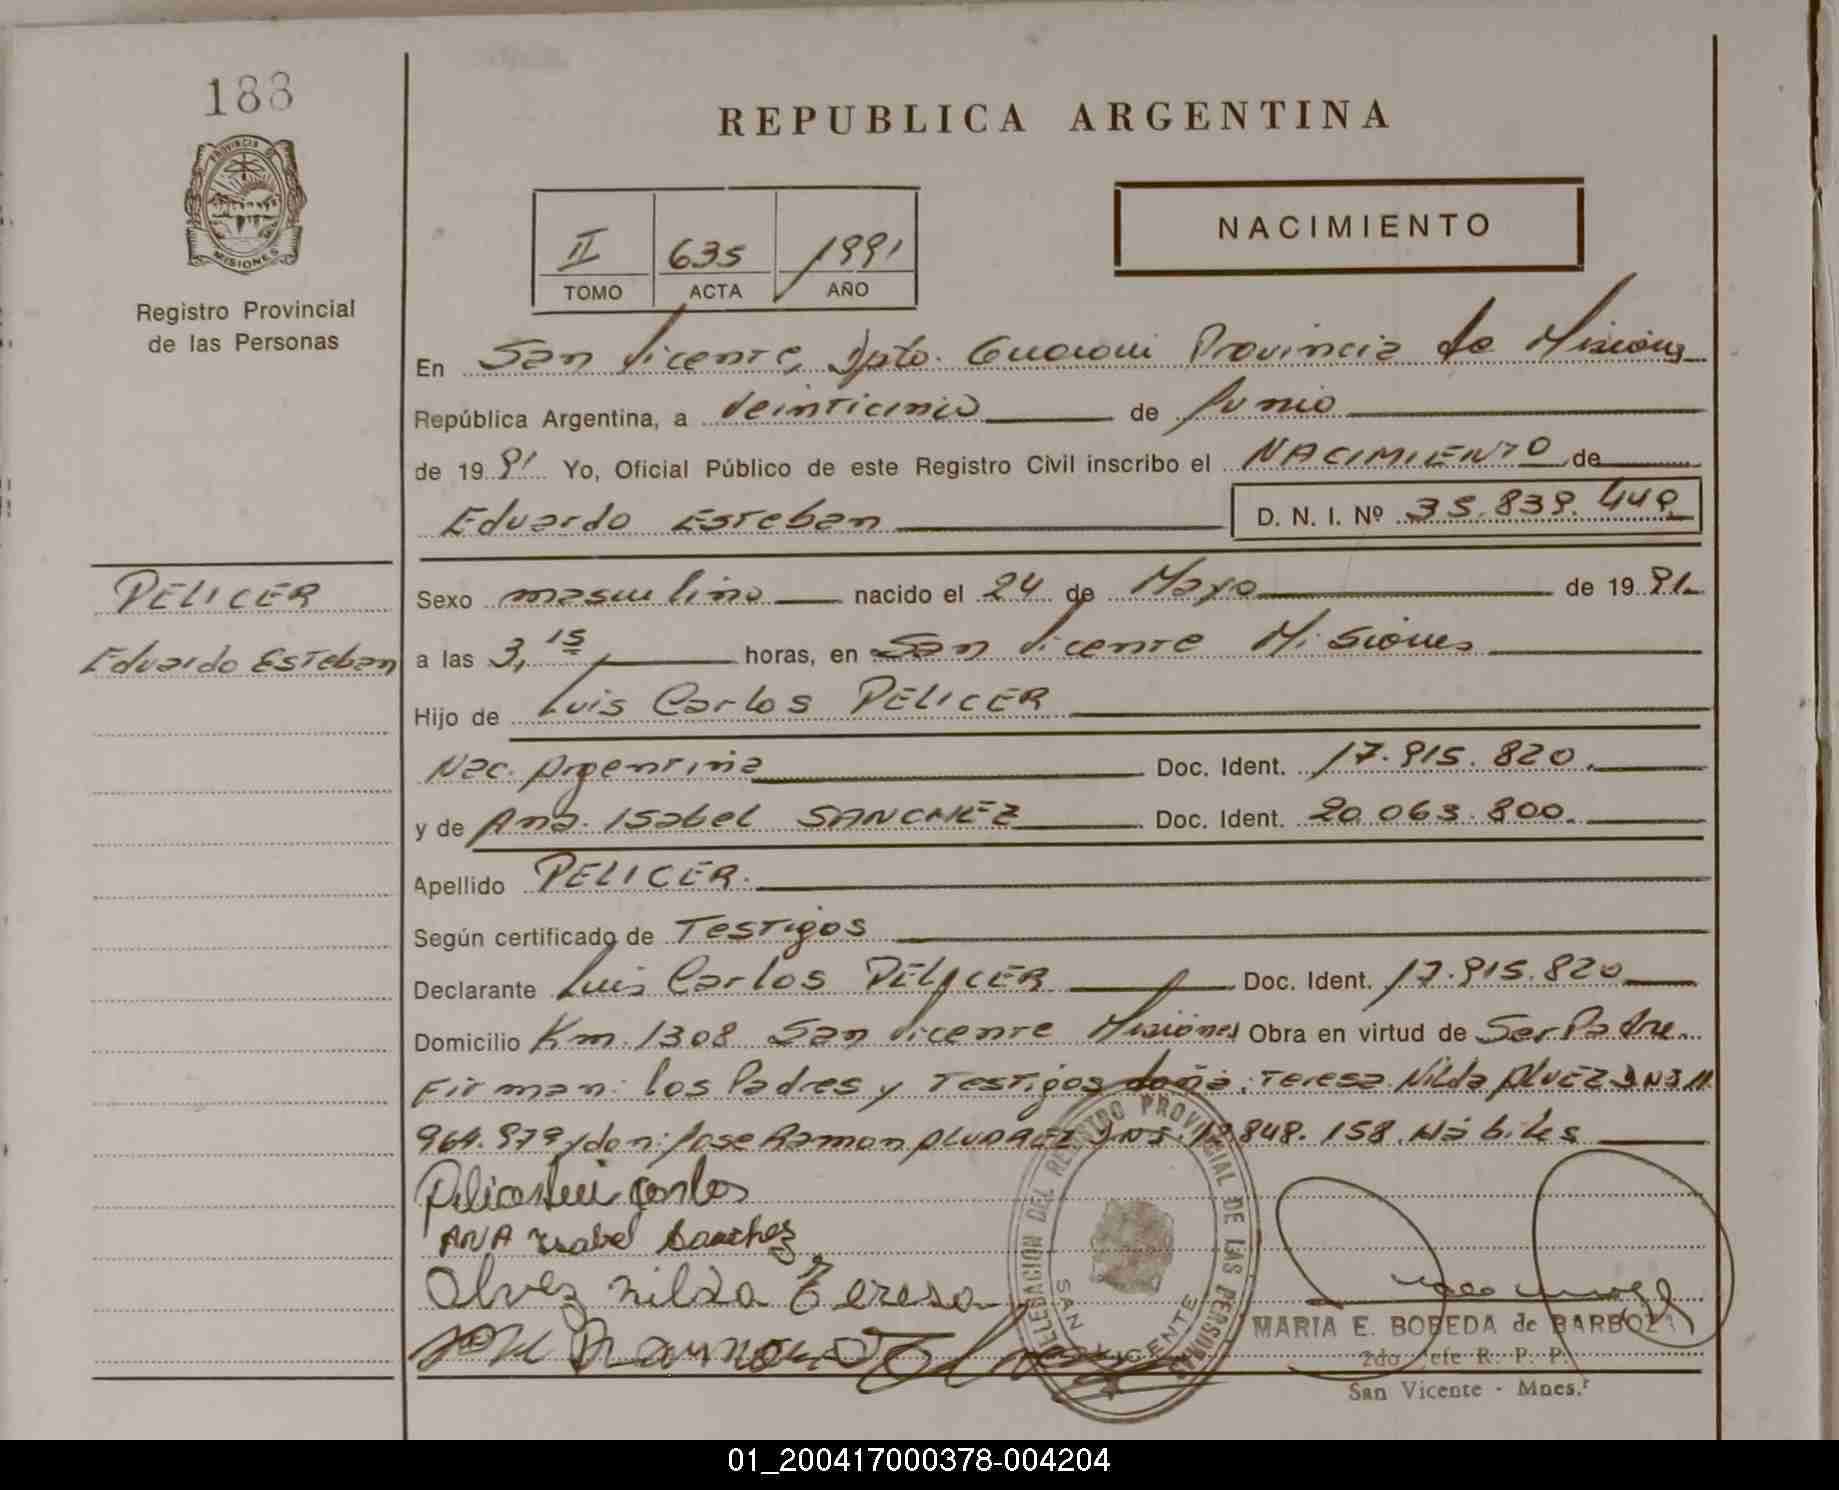 188
REPUBLICA ARGENTINA
PROVINCIA DE
MISIONES
Registro Provincial
de las Personas
II 635 1991
TOMO ACTA AÑO
NACIMIENTO
En San Vicente, Dpto. Guarani Provincia de Misiones
República Argentina, a veinticinco de Junio
de 19 91 Yo, Oficial Público de este Registro Civil inscribo el NACIMIENTO de
Eduardo Esteban D. N. I. Nº 35.839.449
PELICER
Eduardo Esteban
Sexo masculino nacido el 24 de Mayo de 19 91
a las 3,15 horas, en San Vicente Misiones
Hijo de Luis Carlos PELICER
Nac. Argentina Doc. Ident. 17.915.820.
y de Ana Isabel SANCHEZ Doc. Ident. 20.063.800.
Apellido PELICER.
Según certificado de Testigos
Declarante Luis Carlos PELICER Doc. Ident. 17.915.820
Domicilio Km. 1308 San Vicente Misiones Obra en virtud de Ser Padre.
Firman: los Padres y Testigos doña: Teresa Nilda ALVEZ DNI 11
964.979 y don: Jose Ramon ALVAREZ DNI. 12.848.158. Hábiles
Carlos
ANA Isabel Sanchez
Alvez Nilda Teresa
Ramon
DELEGACION DEL REGISTRO PROVINCIAL DE LAS PERSONAS
SAN VICENTE
MARIA E. BOBEDA de BARBOZA
2do Jefe R. P. P.
San Vicente - Mnes.
01_200417000378-004204